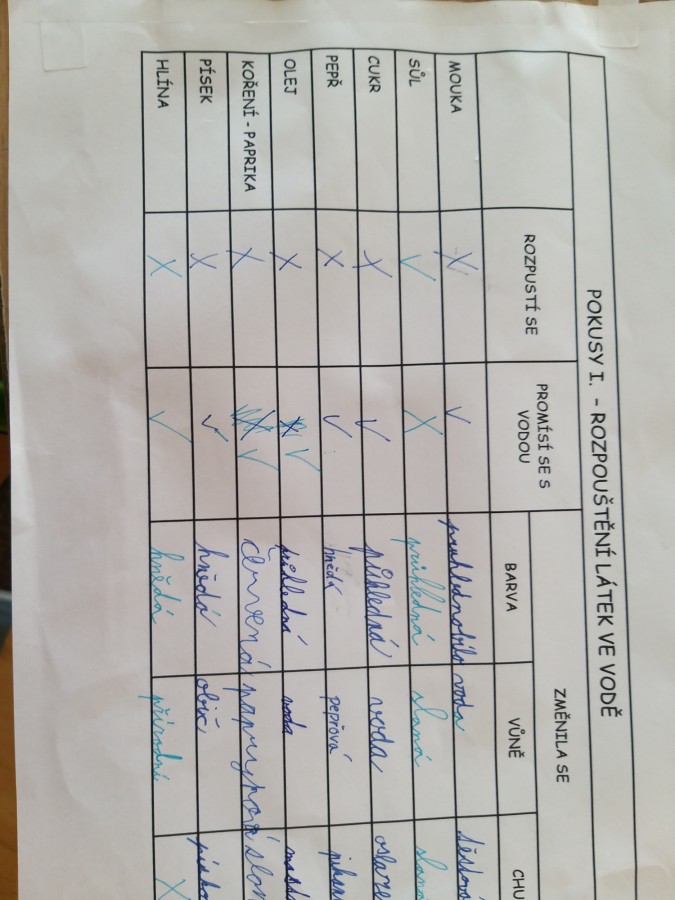 POKUSY I. - ROZPOUŠTĚNÍ LÁTEK VE VODĚ
ROZPUSTÍ SE PROMÍSÍ SE S VODOU ZMĚNILA SE
BARVA VŮNĚ CHU
MOUKA X ✓ voda
SŮL ✓ X průhledná slaná slaná
CUKR X ✓ půhledná voda oslaze
PEPŘ X ✓ hnědá pepřová
OLEJ X X ✓ půhledná voda mast
KOŘENÍ - PAPRIKA X X ✓ červená
PÍSEK X ✓ hnědá
HLÍNA X ✓ hnědá přírodní X